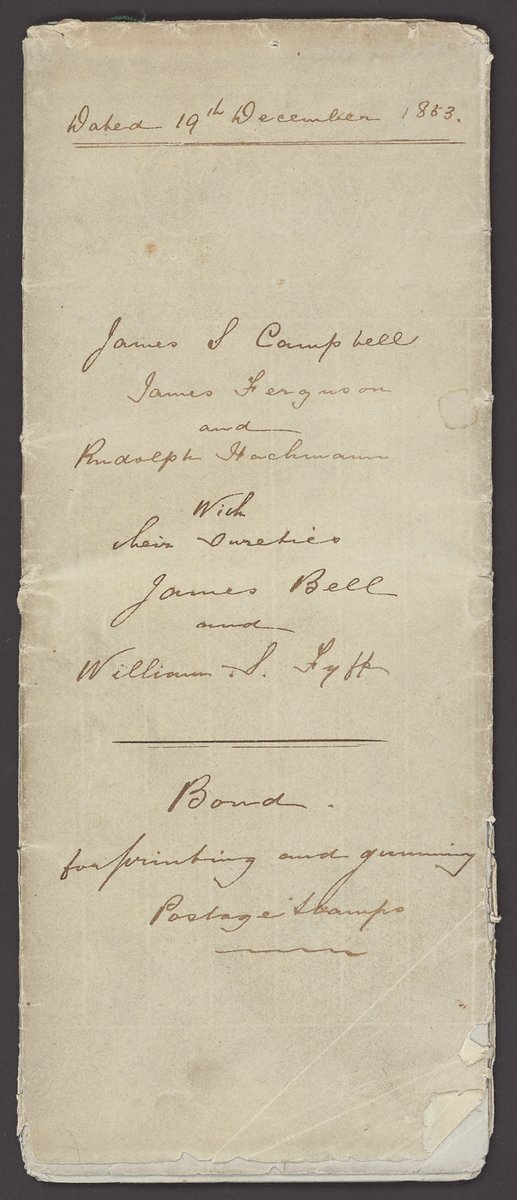 Dated 19th December 1853.
James S Campbell
James Ferguson
and
Rudolph Hachmann
With
their Sureties
James Bell
and
William . S. Fyffe
Bond .
for printing and gumming
Postage Stamps